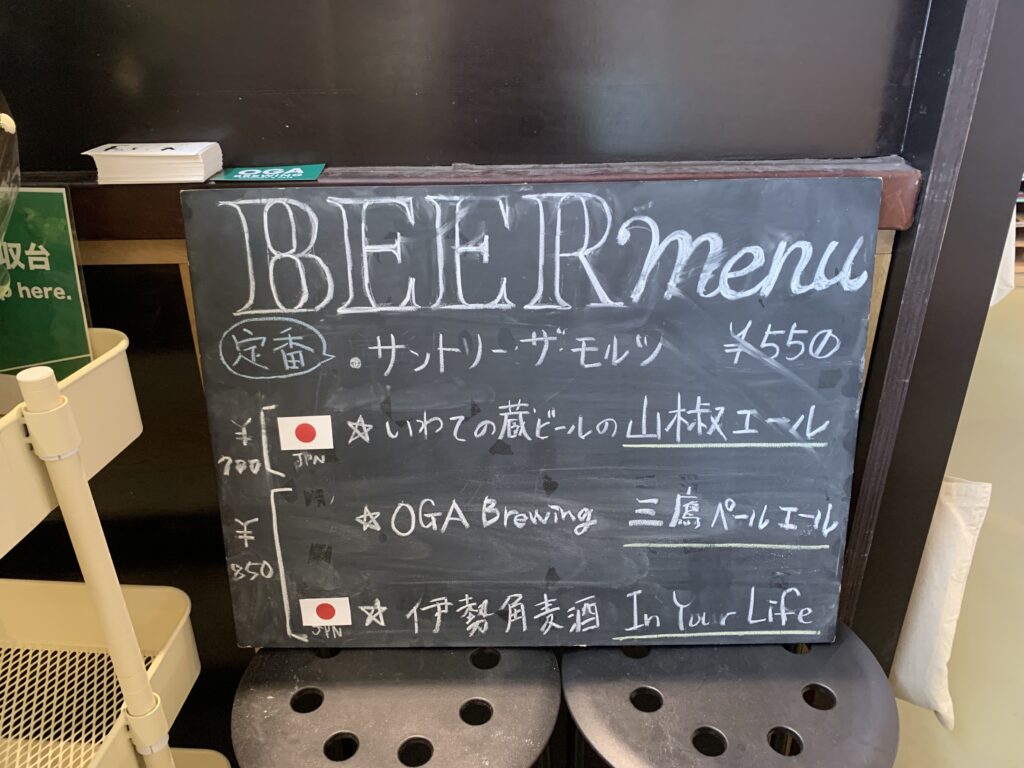 OGA
BREWING
収台
here.
BEER menu
定番 ・サントリー・ザ・モルツ ¥550
¥700 JPN ☆いわての蔵ビールの 山椒エール
¥850 ☆OGA Brewing 三鷹ペールエール
JPN ☆伊勢角麦酒 In Your Life